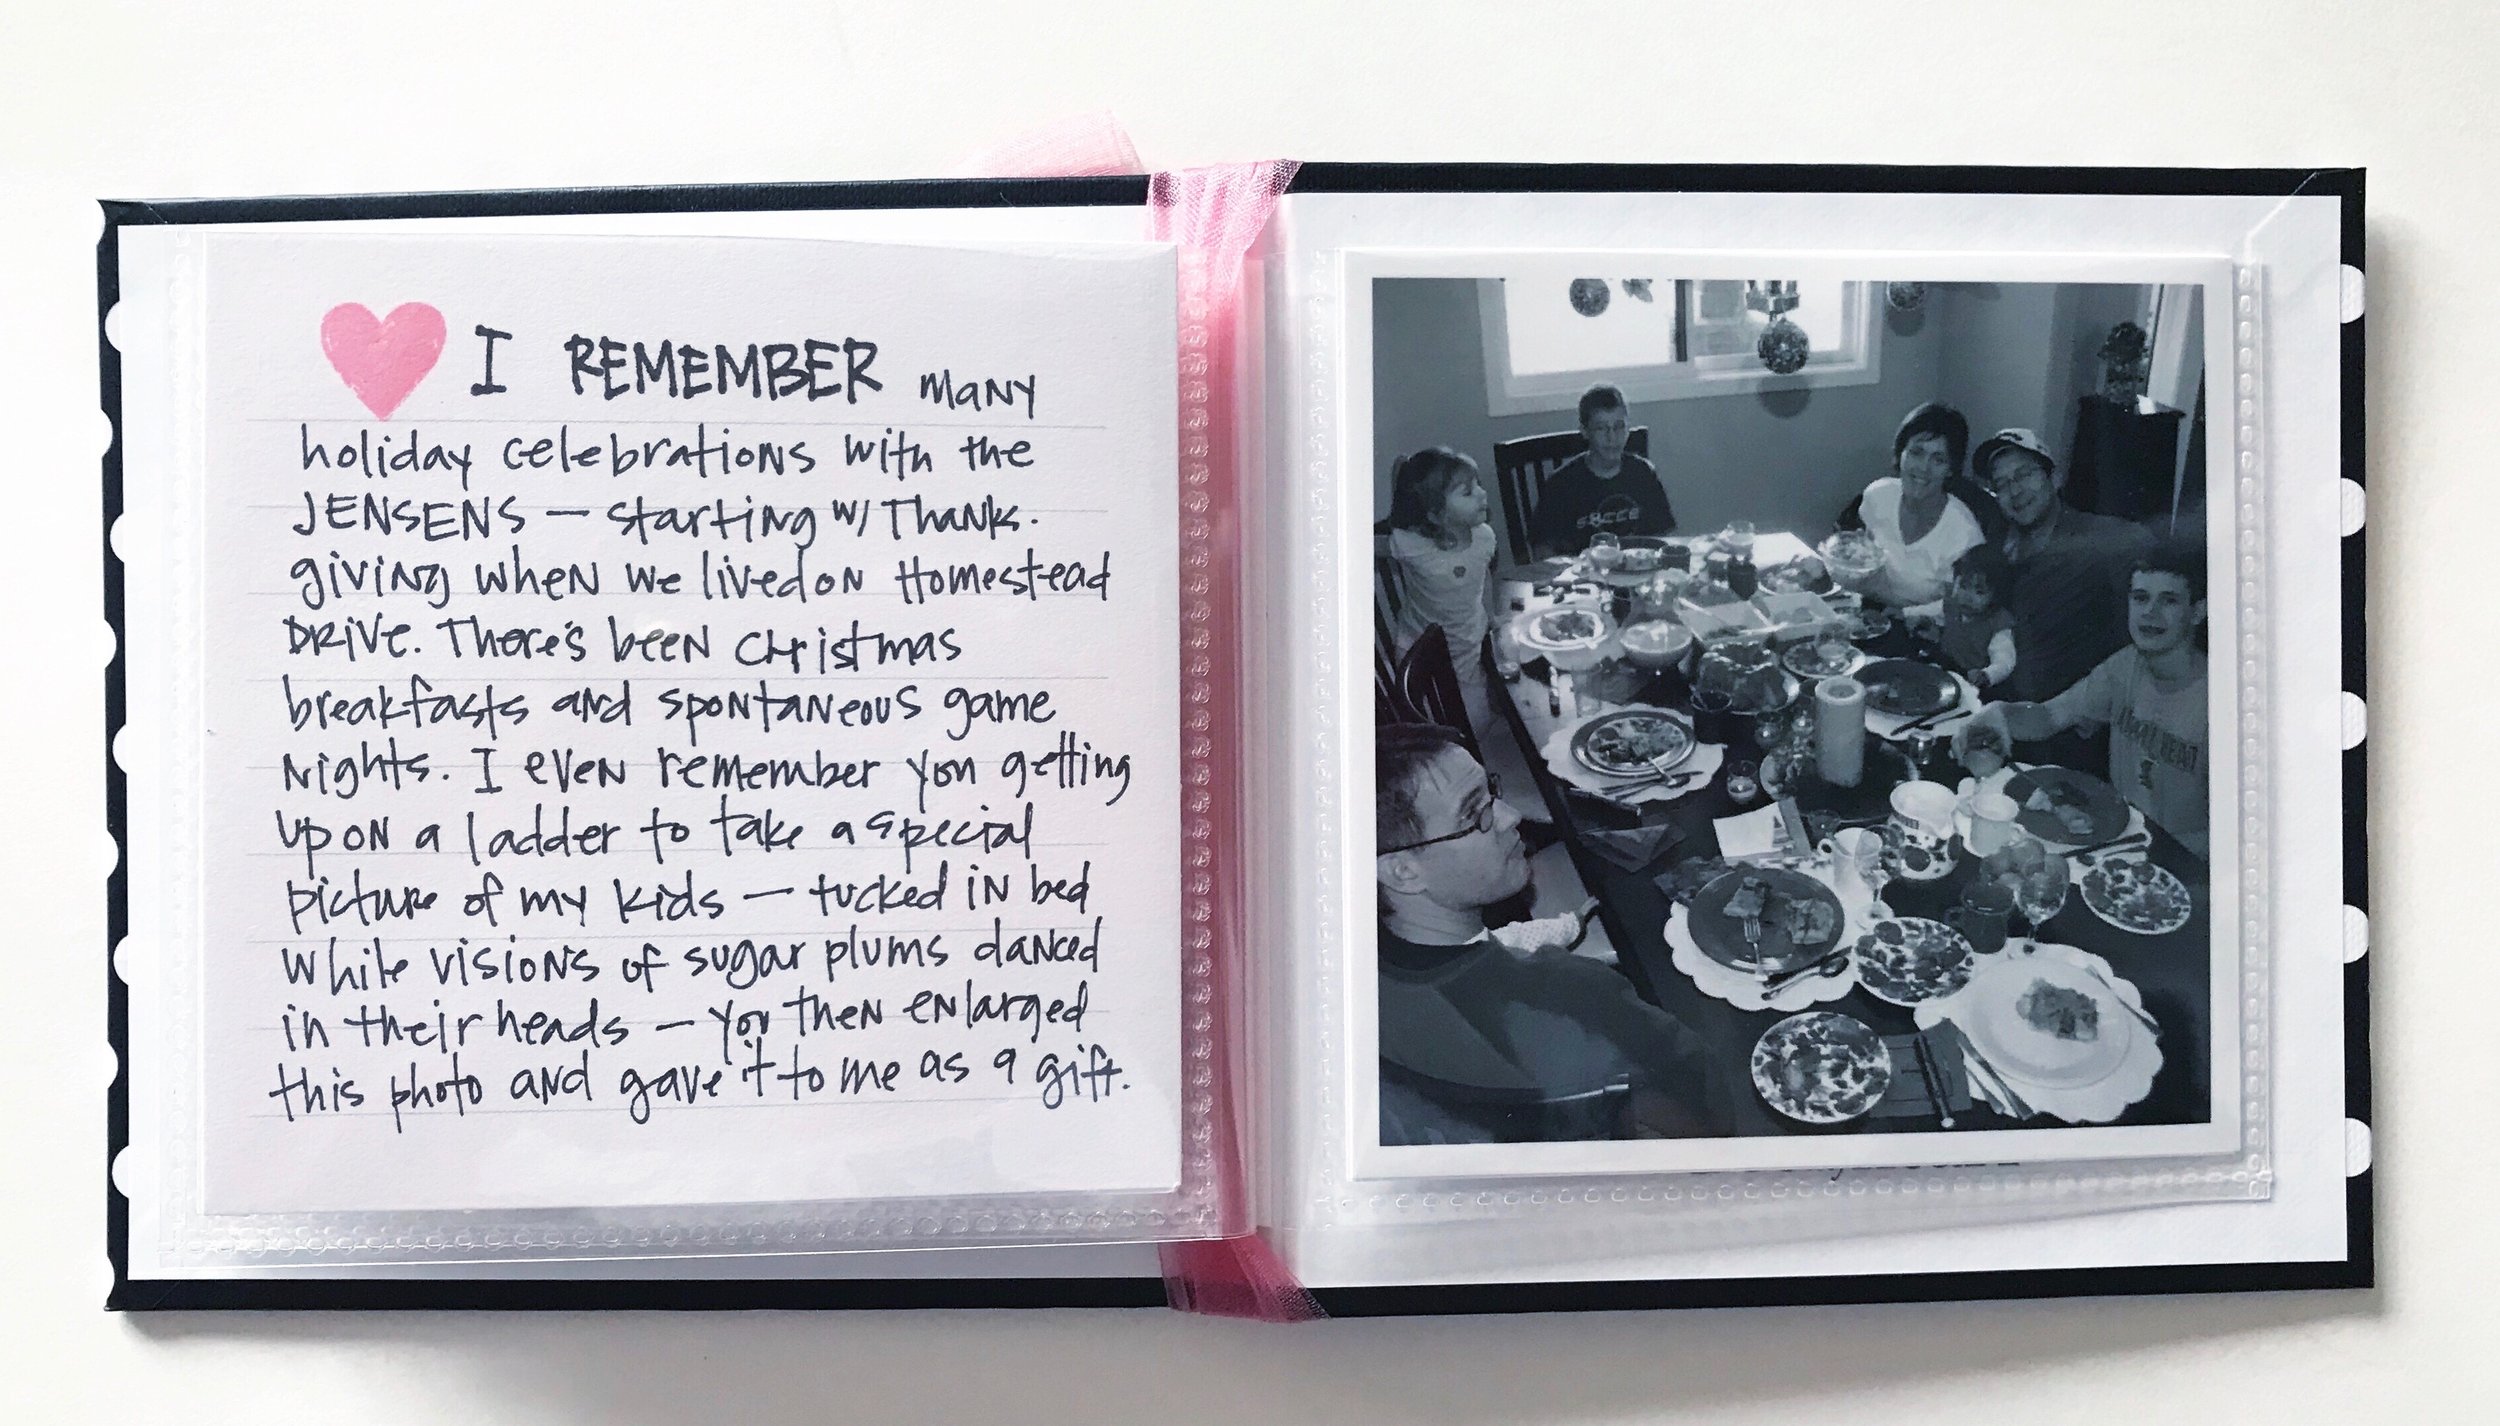 I REMEMBER many
holiday celebrations with the
JENSENS — starting w/ Thanks.
giving when we lived on Homestead
Drive. There's been Christmas
breakfasts and spontaneous game
nights. I even remember you getting
up on a ladder to take a special
picture of my kids — tucked in bed
while visions of sugar plums danced
in their heads — you then enlarged
this photo and gave it to me as a gift.